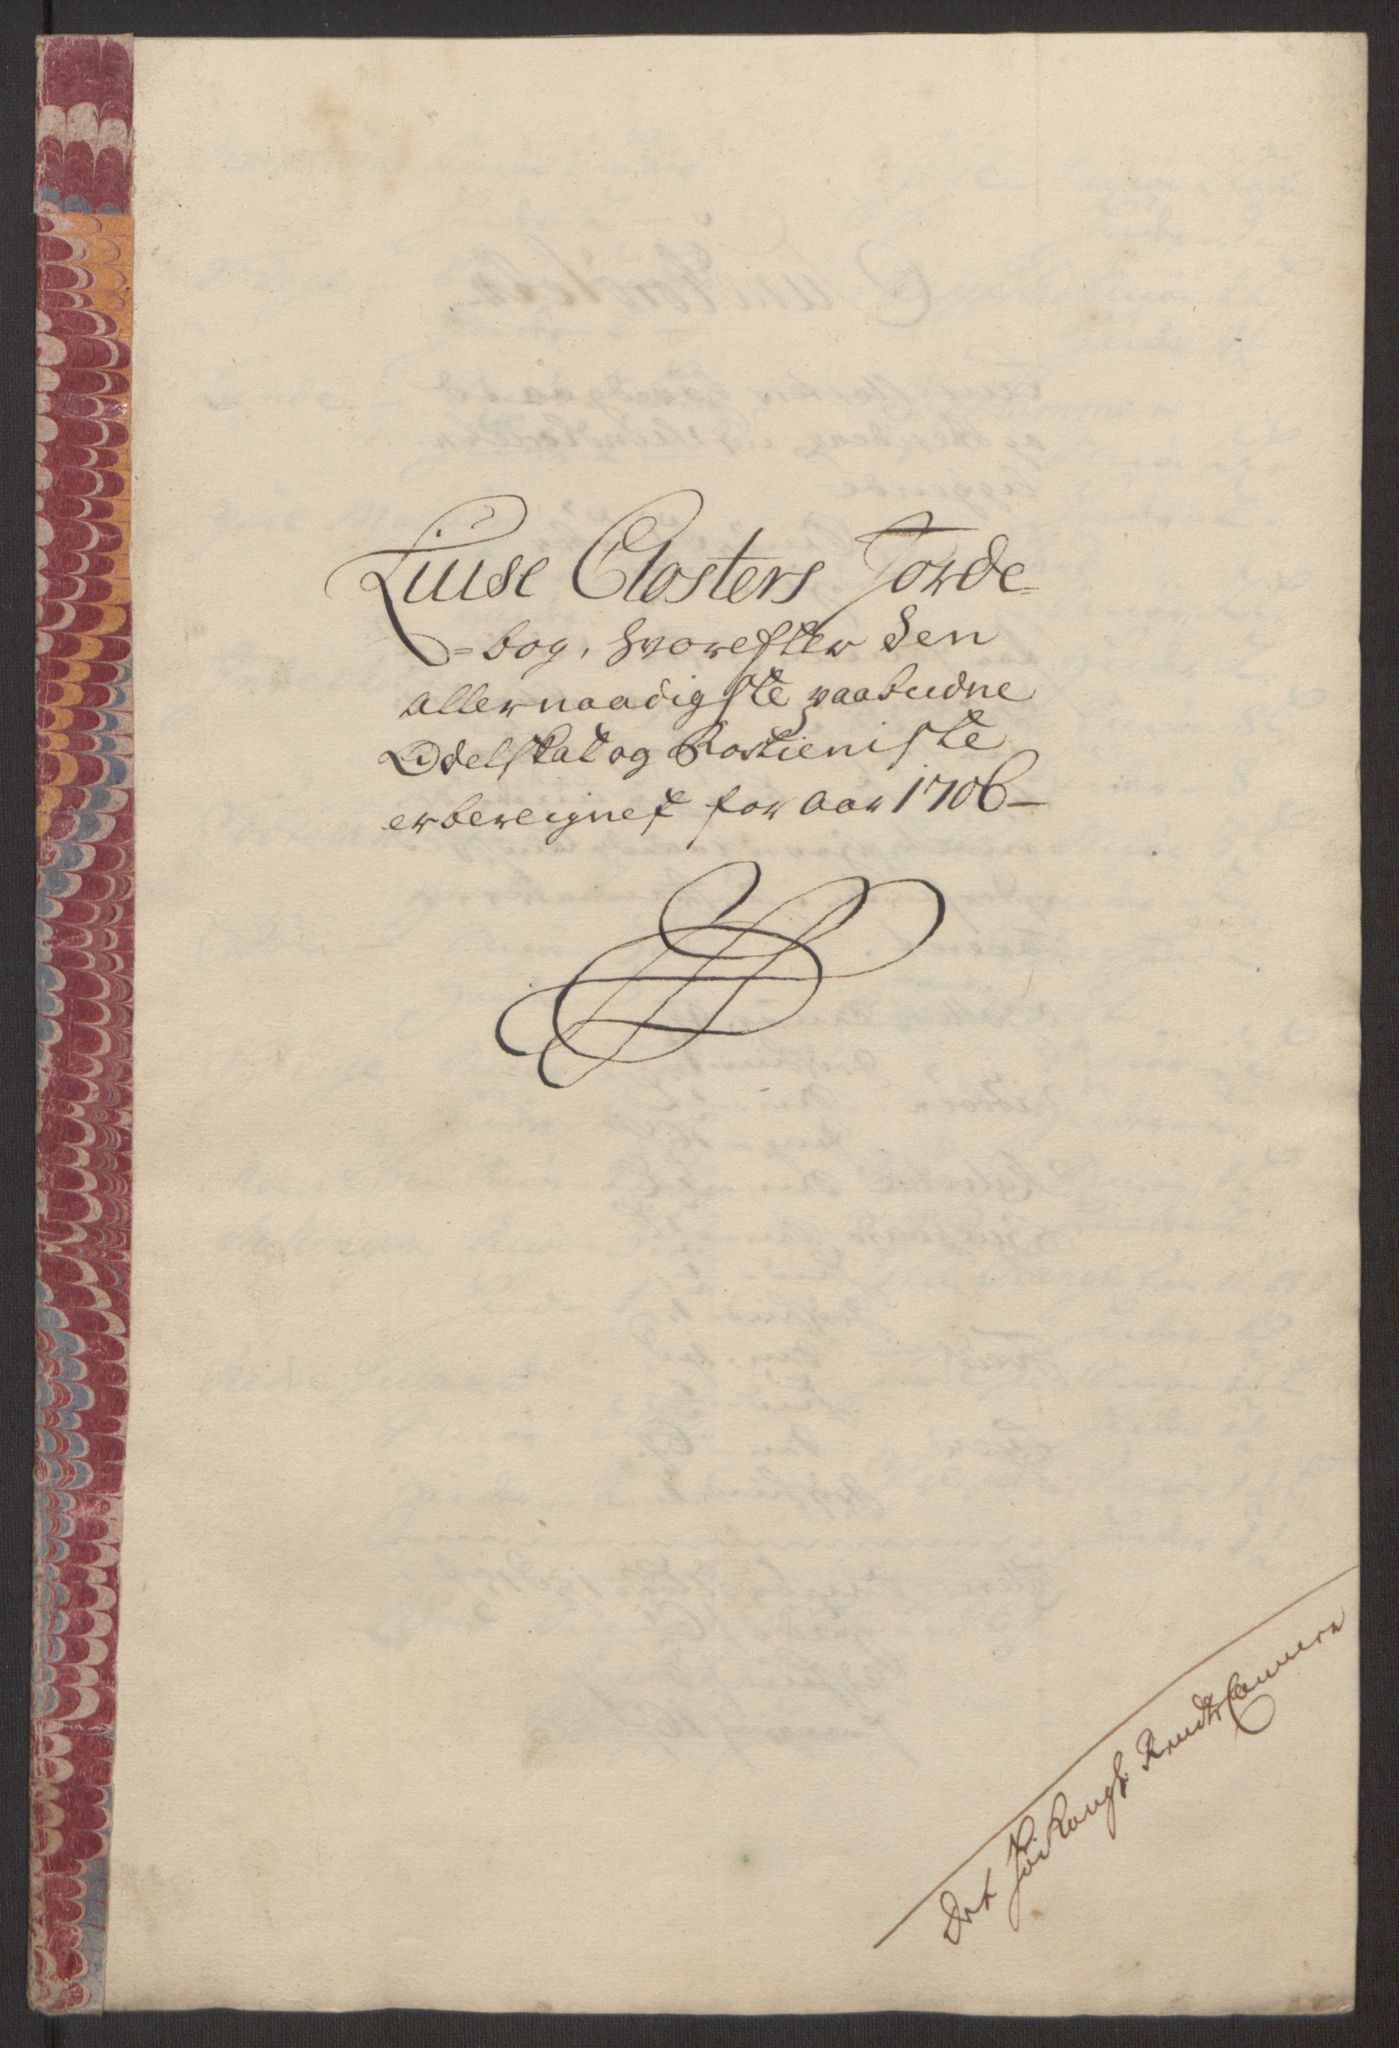 Liuse Closters Jorde-
=bog, hvorefter den
allernaadigste paabudne
Odelskat og Rostieniste
er bereignet for aar 1706
Det Höi Kongl: Rendte Cammer